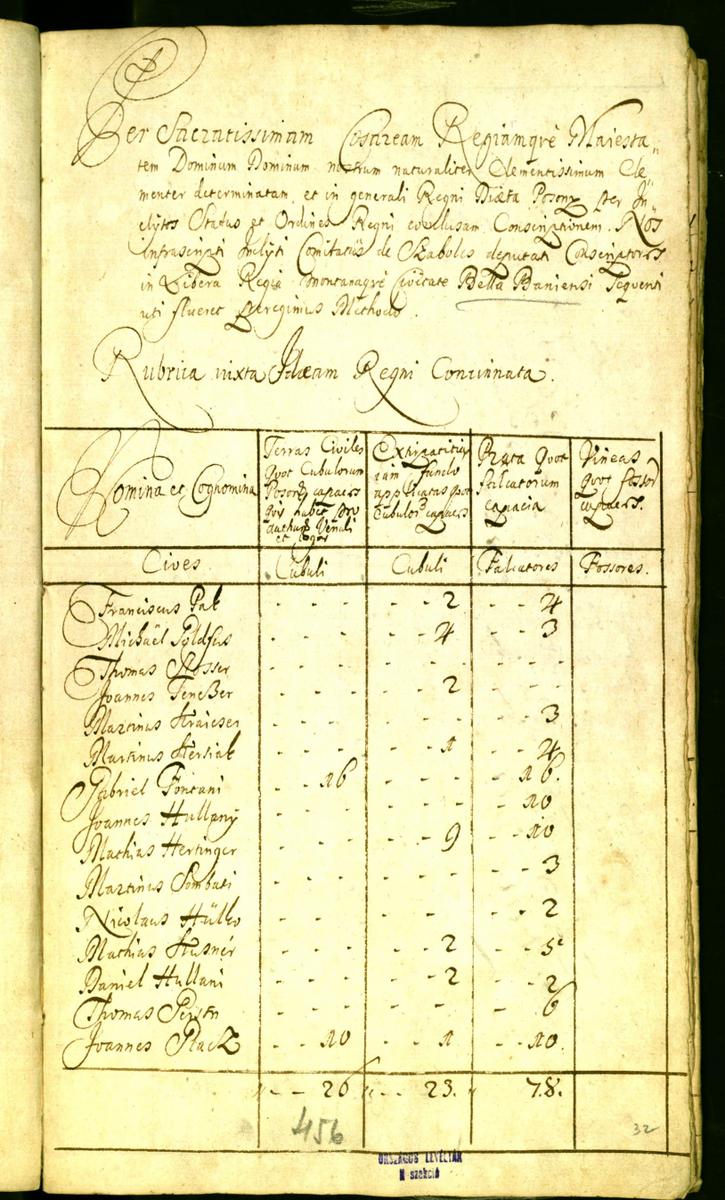 Per Sacratissimam Cesaream Regiamqrè Maiesta„
tem Dominum Dominum nostrum naturaliter Clementissimum Cle„
menter determinatam, et in generali Regni Diæta Posony per In„
clytos Status et Ordines Regni Conscriptionem. Nos
infrascripti Inclyti Comitatûs de Szabolcs deputati Conscriptores
in Libera Regia Montanaqrè Civitate Bella Baniensi Sequenti
uti flueret peregimus Methodo.
Rubrica iuxta Ideam Regni Concinnata.
Nomina et Cognomina | Terras Civiles quot Cubulorum Poson capaces | Extirpatitiam fundo applicatas quot Cubulor capaces | Prata quot falcatorum capacia | Vineas quot fossor capaces.
Cives. | Cubuli | Cubuli | Falcatores | Fossores.
Franciscus Pak - - - - - - 2 - - 4
Michaël Poldfus - - - - - - 4 - - 3
Thomas Slosser - - - - - - - - - - -
Joannes Teneßer - - - - - - 2 - - -
Martinus Kraicser - - - - - - - - - 3
Martinus Hersiak - - - - - - 1 - - 4
Gabriel Fontani - - 16 - - - - - - 16.
Joannes Hullpny - - - - - - - - - - 10
Mathias Hertinger - - - - - - 9 - - 10
Martinus Sombati - - - - - - - - - - 3
Nicolaus Hülko - - - - - - - - - 2
Mathias Husnér - - - - - - 2 - - 5
Daniel Hullani - - - - - - 2 - - 2
Thomas - - - - - - - - - - 6
Joannes Placz - - 10 - - 1 - - 10.
„ - - 26 „ - - 23. „ 78.
456
32
ORSZÁGOS LEVÉLTÁR
N szekció